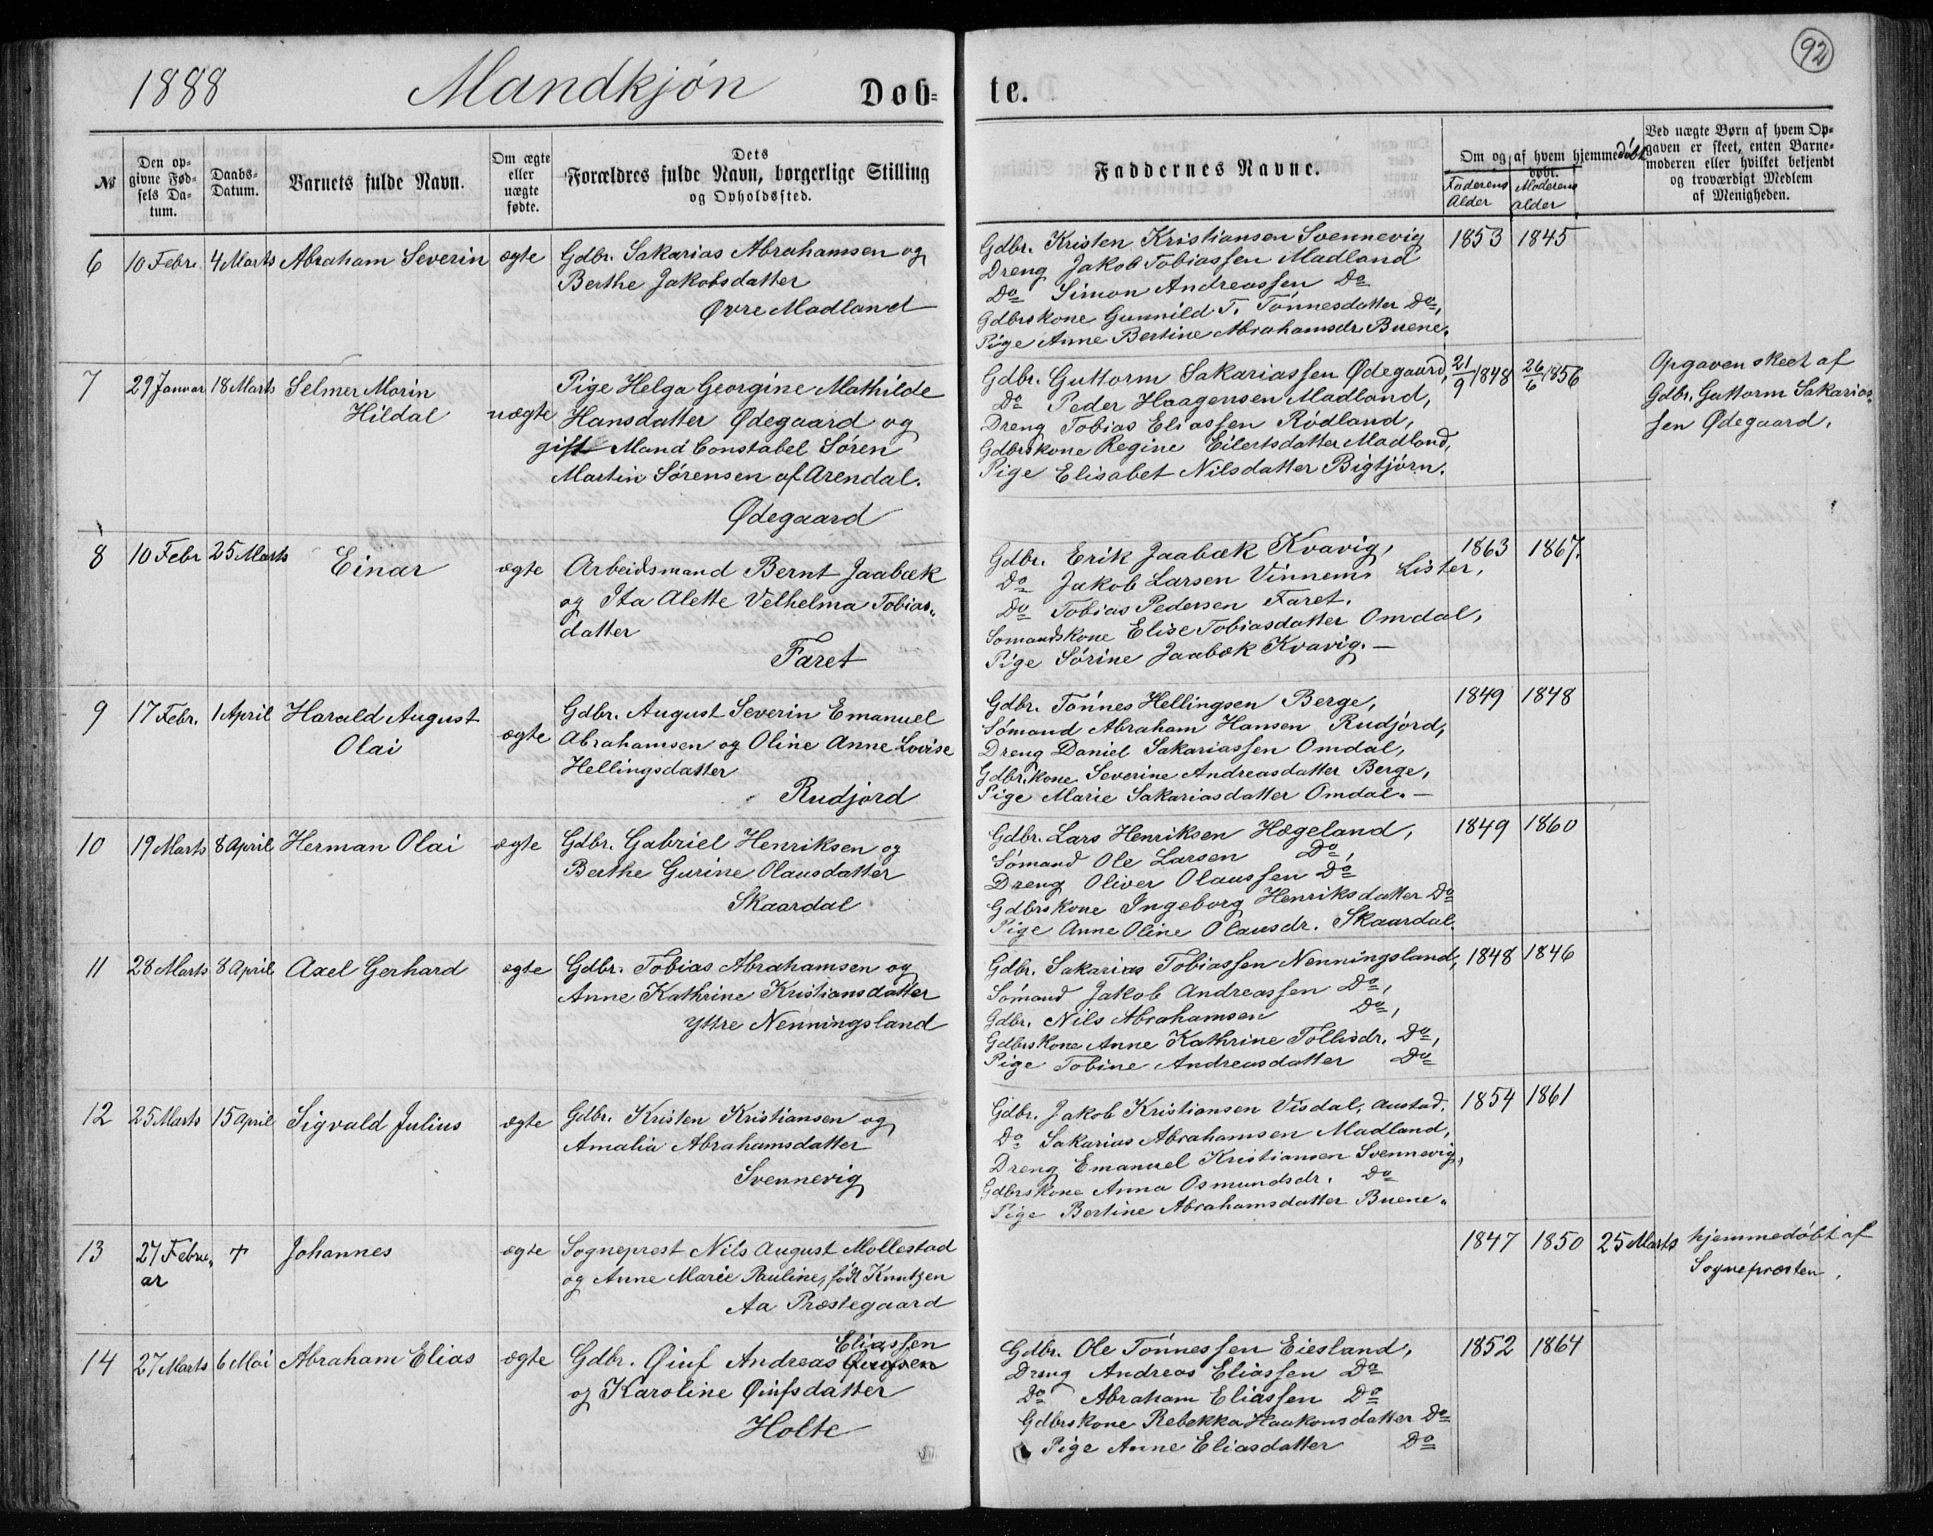 92
1888 Mandkjøn Døb= te.
№
Den op-
givne Fød-
sels Da-
tum.
Daabs-
Datum.
Barnets fulde Navn.
Om ægte
eller
uægte
fødte.
Dets
Forældres fulde Navn, borgerlige Stilling
og Opholdssted.
Faddernes Navne.
Om og af hvem hjemmedøbt
døbt.
Faderens
Alder
Moderens
alder
Ved uægte Børn af hvem Op-
gaven er skeet, enten Barne-
moderen eller hvilket bekjendt
og troværdigt Medlem
af Menigheden.
6 10 Febr. 4 Marts Abraham Severin ægte
Gdbr. Sakarias Abrahamsen og
Berthe Jakobsdatter
Øvre Madland
Gdbr. Kristen Kristiansen Svennevig
Dreng Jakob Tobiassen Madland
Do Simon Andreassen Do
Gdbrskone Gunnild T. Tønnesdatter Do,
Pige Anne Bertine Abrahamsdr Buene.
1853 1845
7 29 Januar 18 Marts Selmer Morin
Hildal
uægte
Pige Helga Georgine Mathilde
Hansdatter Ødegaard og
gift Mand Constabel Søren
Martin Sørensen af Arendal.
Ødegaard
Gdbr. Guttorm Sakariassen Ødegaard,
Do Peder Haagensen Madland,
Dreng Tobias Eliassen Rødland,
Gdbrskone Regine Eilertsdatter Madland,
Pige Elisabet Nilsdatter Bigtjørn.
21/9 1848 26/6 1856
Opgaven skeet af
Gdbr. Guttorm Sakarias-
sen Ødegaard.
8 10 Febr 25 Marts Einar ægte
Arbeidsmand Bernt Jaabæk
og Ita Alette Velhelma Tobias-
datter
Faret
Gdbr. Erik Jaabæk Kvavig,
Do Jakob Larsen Vinnem, Lister,
Do Tobias Pedersen Faret.
Sømandskone Elise Tobiasdatter Omdal,
Pige Sørine Jaabæk Kvavig. —
1863 1867.
9 17 Febr. 1 April Harald August
Olai
ægte
Gdbr. August Severin Emanuel
Abrahamsen og Oline Anne Lovise
Hellingsdatter
Rudjord
Gdbr. Tønnes Hellingsen Berge,
Sømand Abraham Hansen Rudjord,
Dreng Daniel Sakariassen Omdal,
Gdbr.kone Severine Andreasdatter Berge,
Pige Marie Sakariasdatter Omdal. —
1849 1848
10 19 Marts 8 April Herman Olai ægte
Gdbr. Gabriel Henriksen og
Berthe Gurine Olausdatter
Skaardal
Gdbr. Lars Henriksen Hægeland,
Sømand Ole Larsen Do,
Dreng Oliver Olaussen Do
Gdbrskone Ingeborg Henriksdatter Do
Pige Anne Oline Olausdr. Skaardal.
1849 1860
11 28 Marts 8 April Axel Gerhard ægte
Gdbr. Tobias Abrahamsen og
Anne Kathrine Kristiansdatter
Yttre Nenningsland
Gdbr. Sakarias Tobiassen Nenningsland,
Sømand Jakob Andreassen Do,
Gdbr. Nils Abrahamsen Do,
Gdbrskone Anne Kathrine Tollisdr. Do,
Pige Tobine Andreasdatter Do
1848 1846
12 25 Marts 15 April Sigvald Julius ægte
Gdbr. Kristen Kristiansen og
Amalia Abrahamsdatter
Svennevig
Gdbr. Jakob Kristiansen Visdal, Austad.
Do Sakarias Abrahamsen Madland,
Dreng Emanuel Kristiansen Svennevig,
Gdbrskone Anna Osmundsdr. Do
Pige Bertine Abrahamsdatter Buene.
1854 1861
13 27 Febru-
ar
† Johannes ægte
Sogneprest Nils August Mollestad
og Anne Marie Pauline, født Knutzen
Aa Præstegaard
1847 1850 25 Marts
hjemmedøbt af
Sognepræsten.
14 27 Marts 6 Mai Abraham Elias ægte
Eliassen
Gdbr. Øiuf Andreas
og Karoline Øiufsdatter
Holte
Gdbr. Ole Tønnessen Eiesland,
Dreng Andreas Eliassen Do
Do Abraham Eliassen Do
Gdbrskone Rebekka Haakonsdatter Do
Pige Anne Eliasdatter Do
1852 1864